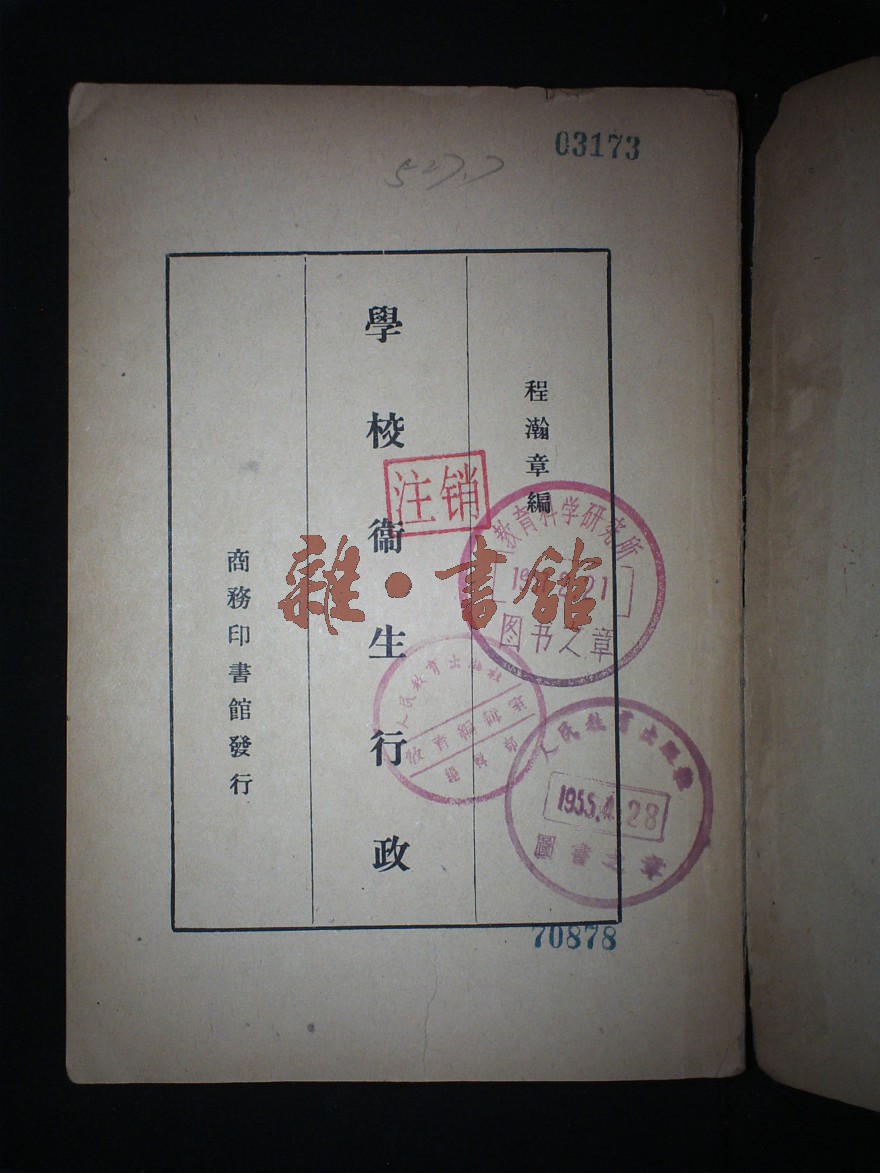 03173
527.7
程瀚章編
學校衞生行政
商務印書館發行
注销
教育科学研究所
图书之章
雜·書館
人民教育出版社
人民教育出版社
1955.4.28
圖書之章
70878